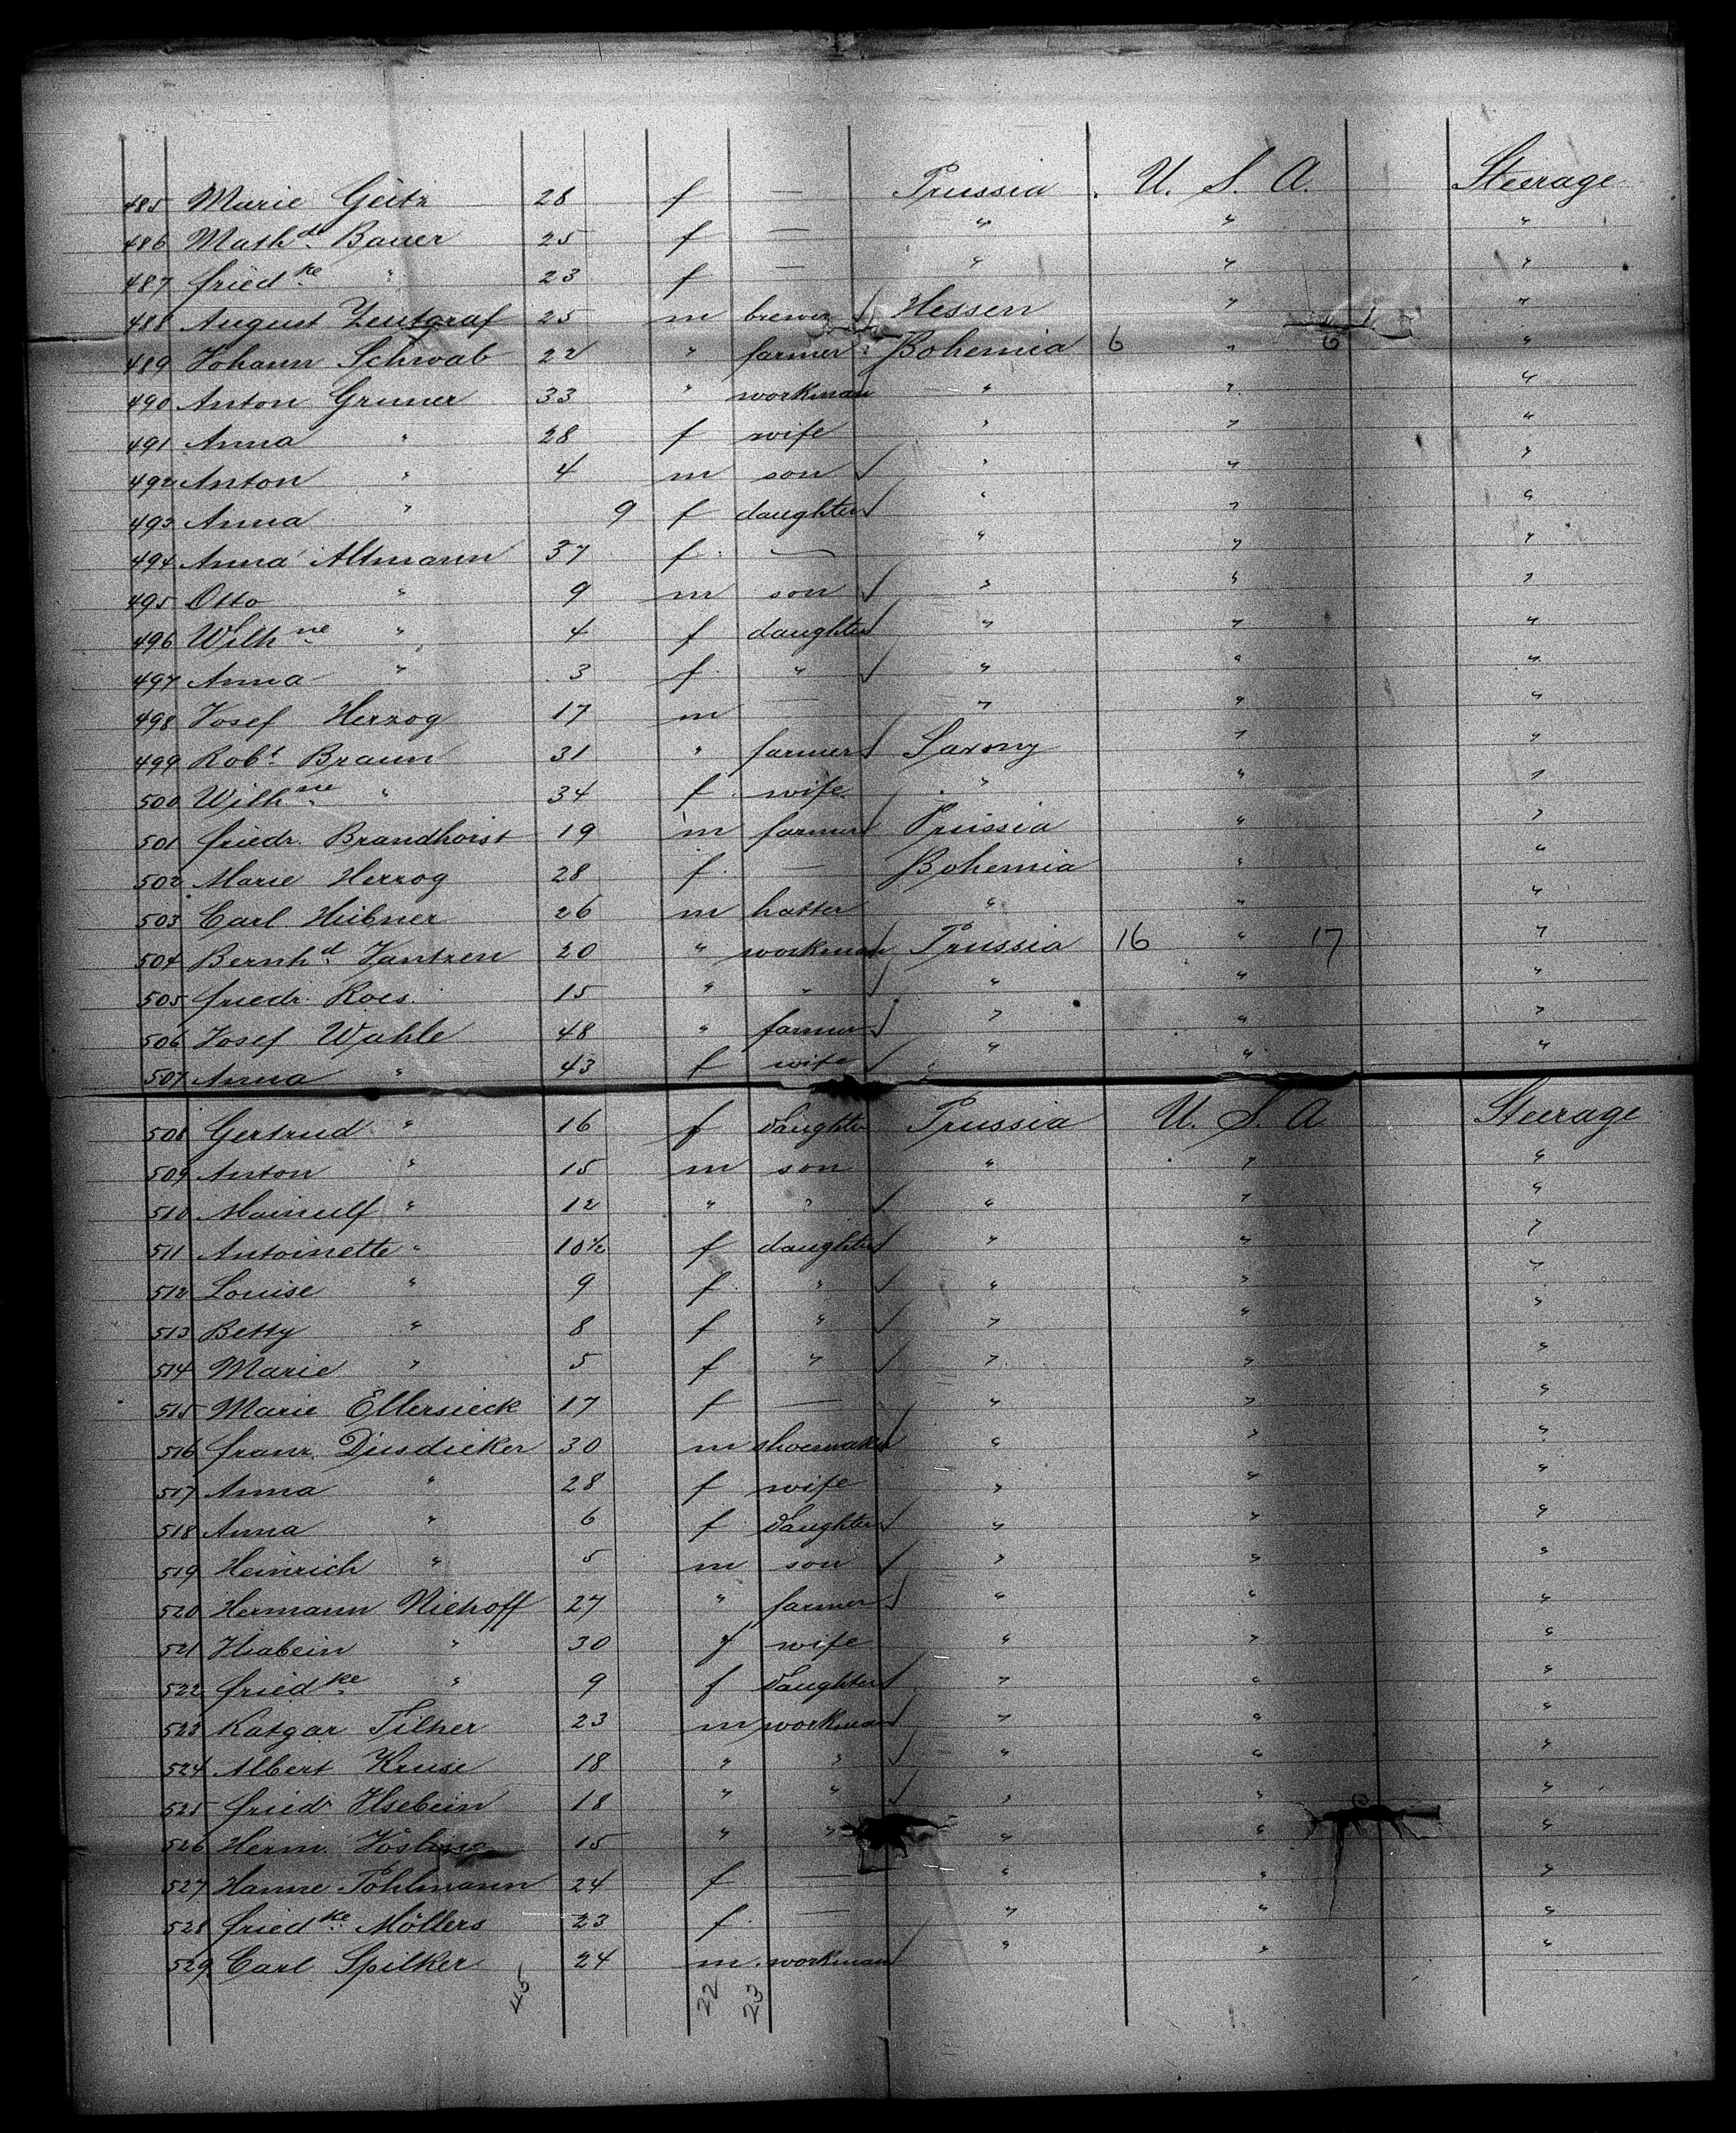 485 Marie Geitz 28 f — Prussia U. S. A. Steerage
486 Mathde Bauer 25 f — " " "
487 Friedke " 23 f — " " "
488 August Zentgraf 25 m brewer Hessen " "
489 Johann Schwab 22 " farmer Bohemia 6 " 6 "
490 Anton Gruner 33 " workman " " "
491 Anna " 28 f wife " " "
492 Anton " 4 m son " " "
493 Anna " 9 f daughter " " "
494 Anna Altmann 37 f — " " "
495 Otto " 9 m son " " "
496 Wilhne " 4 f daughter " " "
497 Anna " 3 f " " " "
498 Josef Herzog 17 m — " " "
499 Robt Braun 31 " farmer Saxony " "
500 Wilhne " 34 f wife " " "
501 Friedr. Brandhorst 19 m farmer Prussia " "
502 Marie Herzog 28 f — Bohemia " "
503 Carl Hübner 26 m hatter " " "
504 Bernhd Jantzen 20 " workman Prussia 16 " 17 "
505 Friedr. Roes 15 " " " " "
506 Josef Wahle 48 " farmer " " "
507 Anna " 43 f wife " " "
508 Gertrud " 16 f daughter Prussia U. S. A. Steerage
509 Anton " 15 m son " " "
510 Mainulf " 12 " " " " "
511 Antoinette " 10½ f daughter " " "
512 Louise " 9 f " " " "
513 Betty " 8 f " " " "
514 Marie " 5 f " " " "
515 Marie Ellersieck 17 f — " " "
516 Franz Diesdieker 30 m shoemaker " " "
517 Anna " 28 f wife " " "
518 Anna " 6 f daughter " " "
519 Heinrich " 5 m son " " "
520 Hermann Niehoff 27 " farmer " " "
521 Ilsabein " 30 f wife " " "
522 Friedke " 9 f daughter " " "
523 23 m workman " " "
524 Albert Kruse 18 " " " " "
525 Friedr Ilsebein 18 " " " " "
526 Herm. 15 " " " " "
527 Hanne Pohlmann 24 f — " " "
528 Friedke Möllers 23 f — " " "
529 Carl Spilker 24 m workman " " "
45 22 23